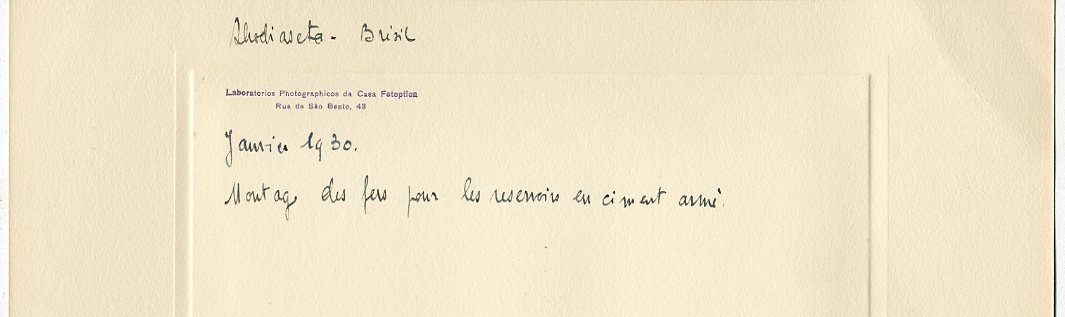 Rhodiaseta - Brésil
Laboratorios Photographicos da Casa Fotoptica
Rua de São Bento, 43
Janvier 1930.
Montage des fers pour les reservoirs en ciment armé.